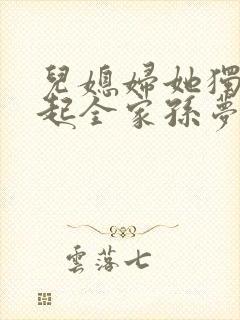 兒媳婦她獨
起全家孫夢
雲落七